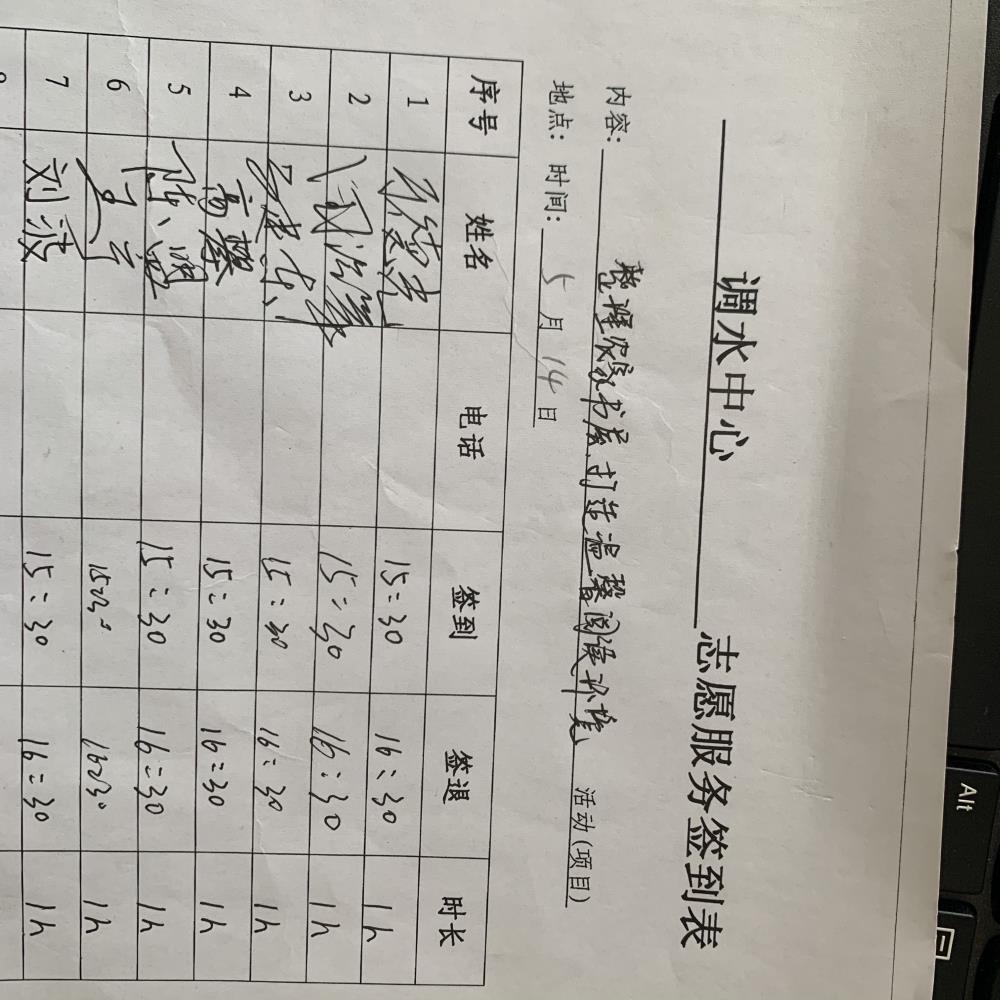 调水中心 志愿服务签到表
内容: 整理农家书屋,打造温馨阅读环境 活动(项目)
地点: 时间: 5 月 14 日
序号 姓名 电话 签到 签退 时长
1 15:30 16:30 1h
2 15:30 16:30 1h
3 15:30 16:30 1h
4 高馨 15:30 16:30 1h
5 15:30 16:30 1h
6 15:30 16:30 1h
7 刘波 15:30 16:30 1h
Alt